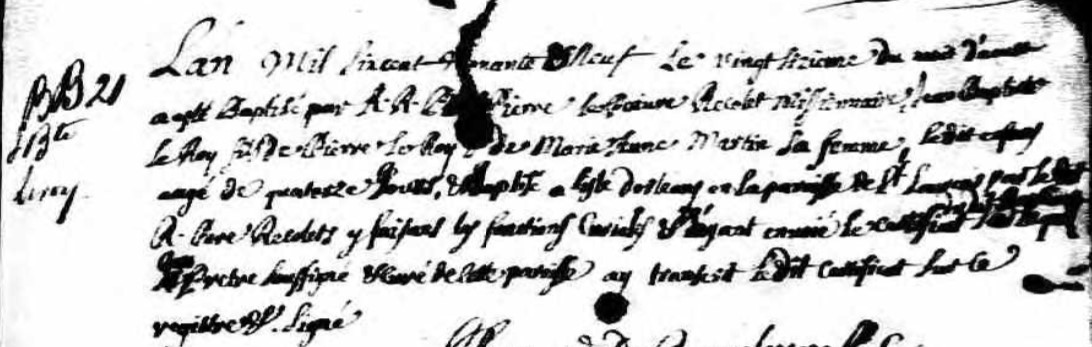 BB 21
JBte
Leroy
Lan Mil sixcent nonante & Neuf Le vingt sizieme du mois d'aoust
a esté Baptisé par R. R. P. Pierre Recolet Missionnaire, Jean Baptiste
Le Roy fils de Pierre Le Roy & de Marie Anne Martin sa femme, ledit enfant
aagé de quatorze Jours, & Baptisé a lisle dorleans en la paroisse de St. Laurens par le dit
R. Pere Recolets y faisant les fonctions Curiales & Ayant envoié le certificat
Prestre soussigné & Curé de cette paroisse ay transcrit ledit Certificat sur ce
registre & signé